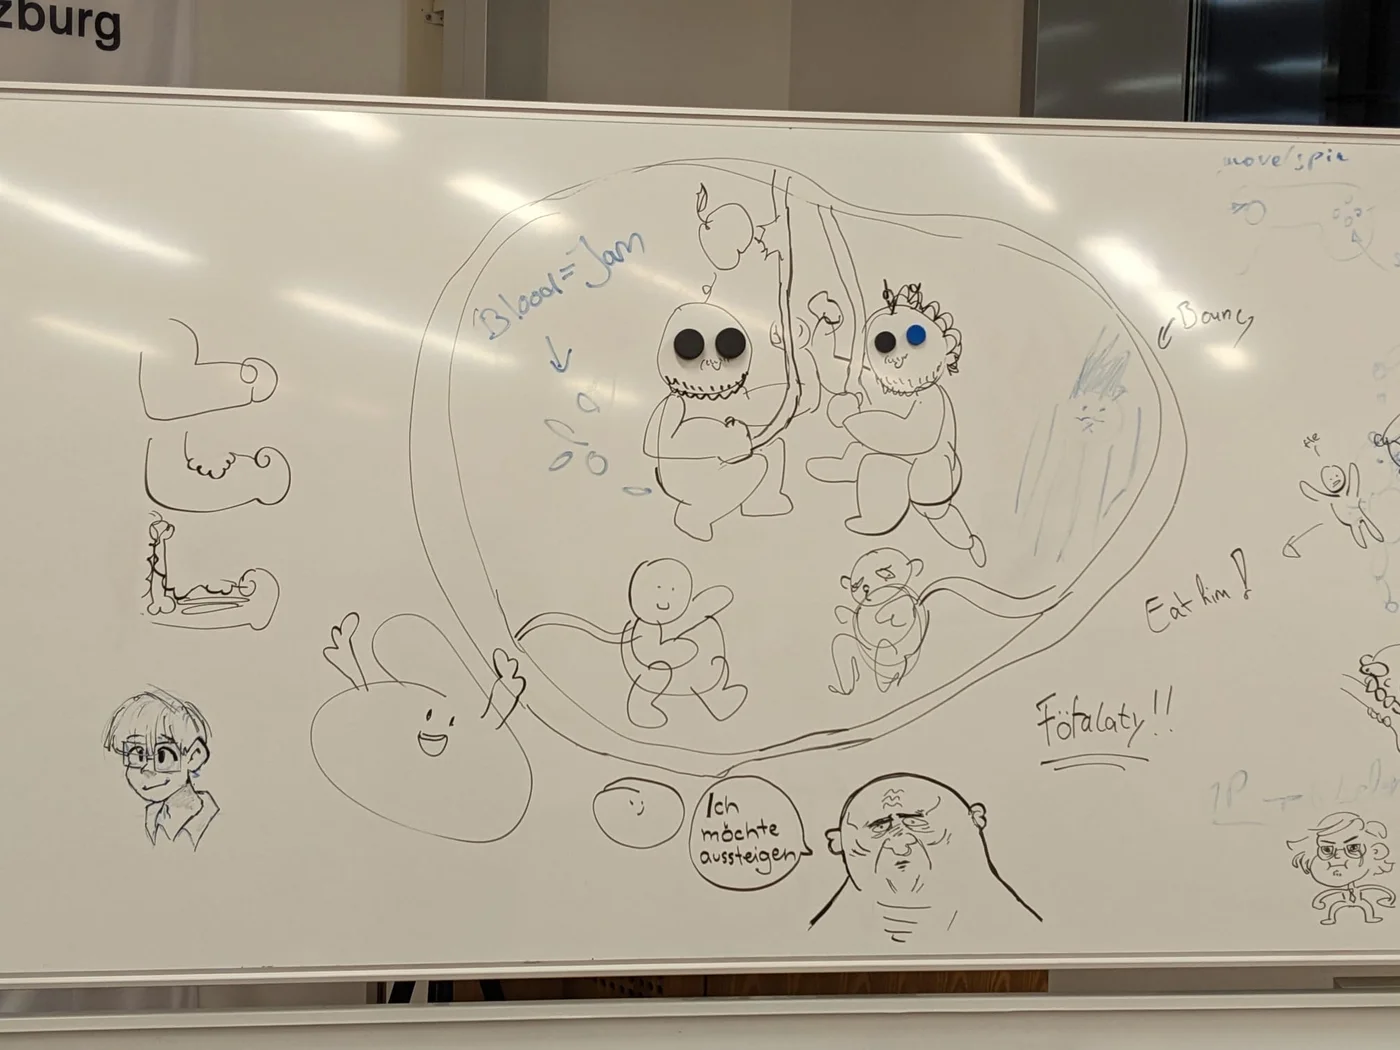 zburg
move/spin
Blood=Jam
Bouncy
He
Eat him!
Fötalaty!!
1P
Ich
möchte
aussteigen